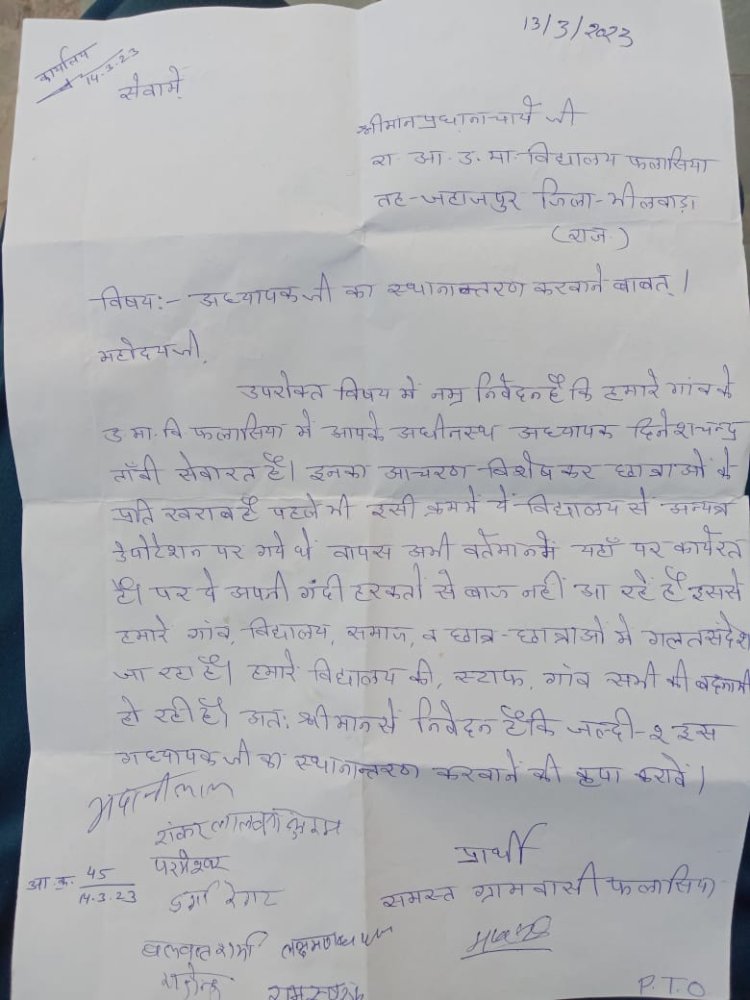 13/3/2023
कार्यालय
14.3.23
सेवामें
श्रीमान प्रधानाचार्य जी
रा. आ. उ. मा. विद्यालय फलासिया
तह-जहाजपुर जिला-भीलवाड़ा
(राज.)
विषय:- अध्यापक जी का स्थानान्तरण करवाने बाबत्।
महोदयजी,
उपरोक्त विषय में नम्र निवेदन है कि हमारे गांव के
उ मा. वि. फलासिया में आपके अधीनस्थ अध्यापक दिनेश चन्द्र
ताँबी सेवारत है। इनका आचरण विशेष कर छात्राओं के
प्रति खराब है पहले भी इसी क्रम में ये विद्यालय से अन्यत्र
डेपोटेशन पर गये थे वापस अभी वर्तमान में यहाँ पर कार्यरत
है। पर ये अपनी गंदी हरकतों से बाज नहीं आ रहे हैं इससे
हमारे गांव, विद्यालय, समाज, व छात्र-छात्राओं में गलत संदेश
जा रहा है। हमारे विद्यालय की, स्टाफ, गांव सभी की बदनामी
हो रही है। अतः श्रीमान से निवेदन है कि जल्दी-२ इस
अध्यापक जी का स्थानान्तरण करवाने की कृपा करावें।
भवानीलाल
शंकर लाल
परमेश्वर
प्रार्थी
आ. क्र. 45
14.3.23
दुर्गा रेगर
समस्त ग्रामवासी फलासिया
बलवन्त शर्मा
P.T.O